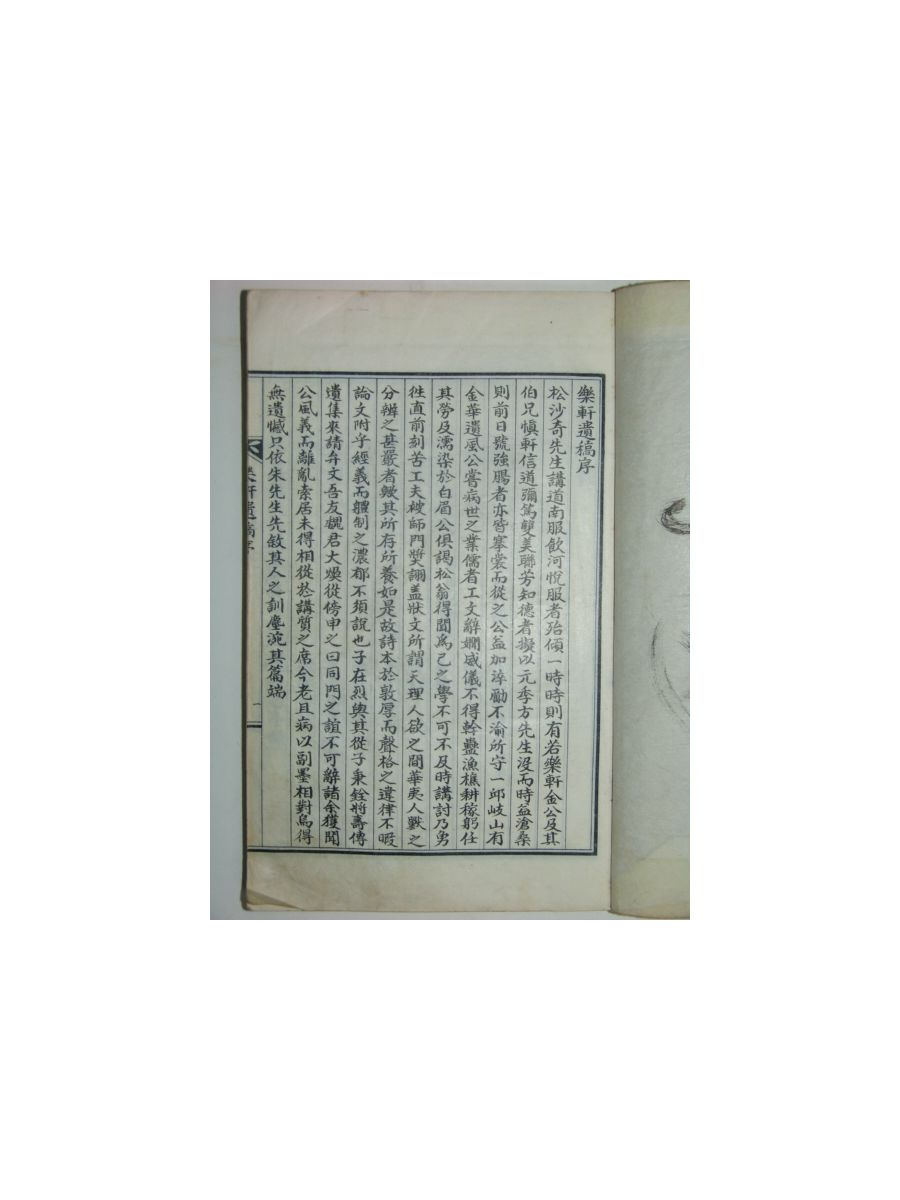 樂軒遺稿序
松沙奇先生講道南服飮河悅服者殆傾一時時則有若樂軒金公及其
伯兄愼軒信道彌篤雙美聯芳知德者擬以元季方先生沒而時益滄桑
則前日號強腸者亦皆搴裳而從之公益加淬勵不渝所守一邱岐山有
金華遺風公嘗病世之業儒者工文辭嫺威儀不得幹蠱漁樵耕稼躬任
其勞及濡染於白眉公俱謁松翁得聞爲己之學不可不及時講討乃勇
徃直前刻苦工夫被師門奬詡盖狀文所謂天理人欲之間華夷人獸之
分辨之甚嚴者驗其所存所養如是故詩本於敦厚而聲格之違律不暇
論文附乎經義而軆制之濃郁不須說也子在烈與其從子秉銓將壽傳
遺集來請弁文吾友魏君大煥從傍申之曰同門之誼不可辭諸余獲聞
公風義而離亂索居未得相從於講質之席今老且病以副墨相對烏得
無遺憾只依朱先生先敘其人之訓塵涴其篇端
樂軒遺稿序
一